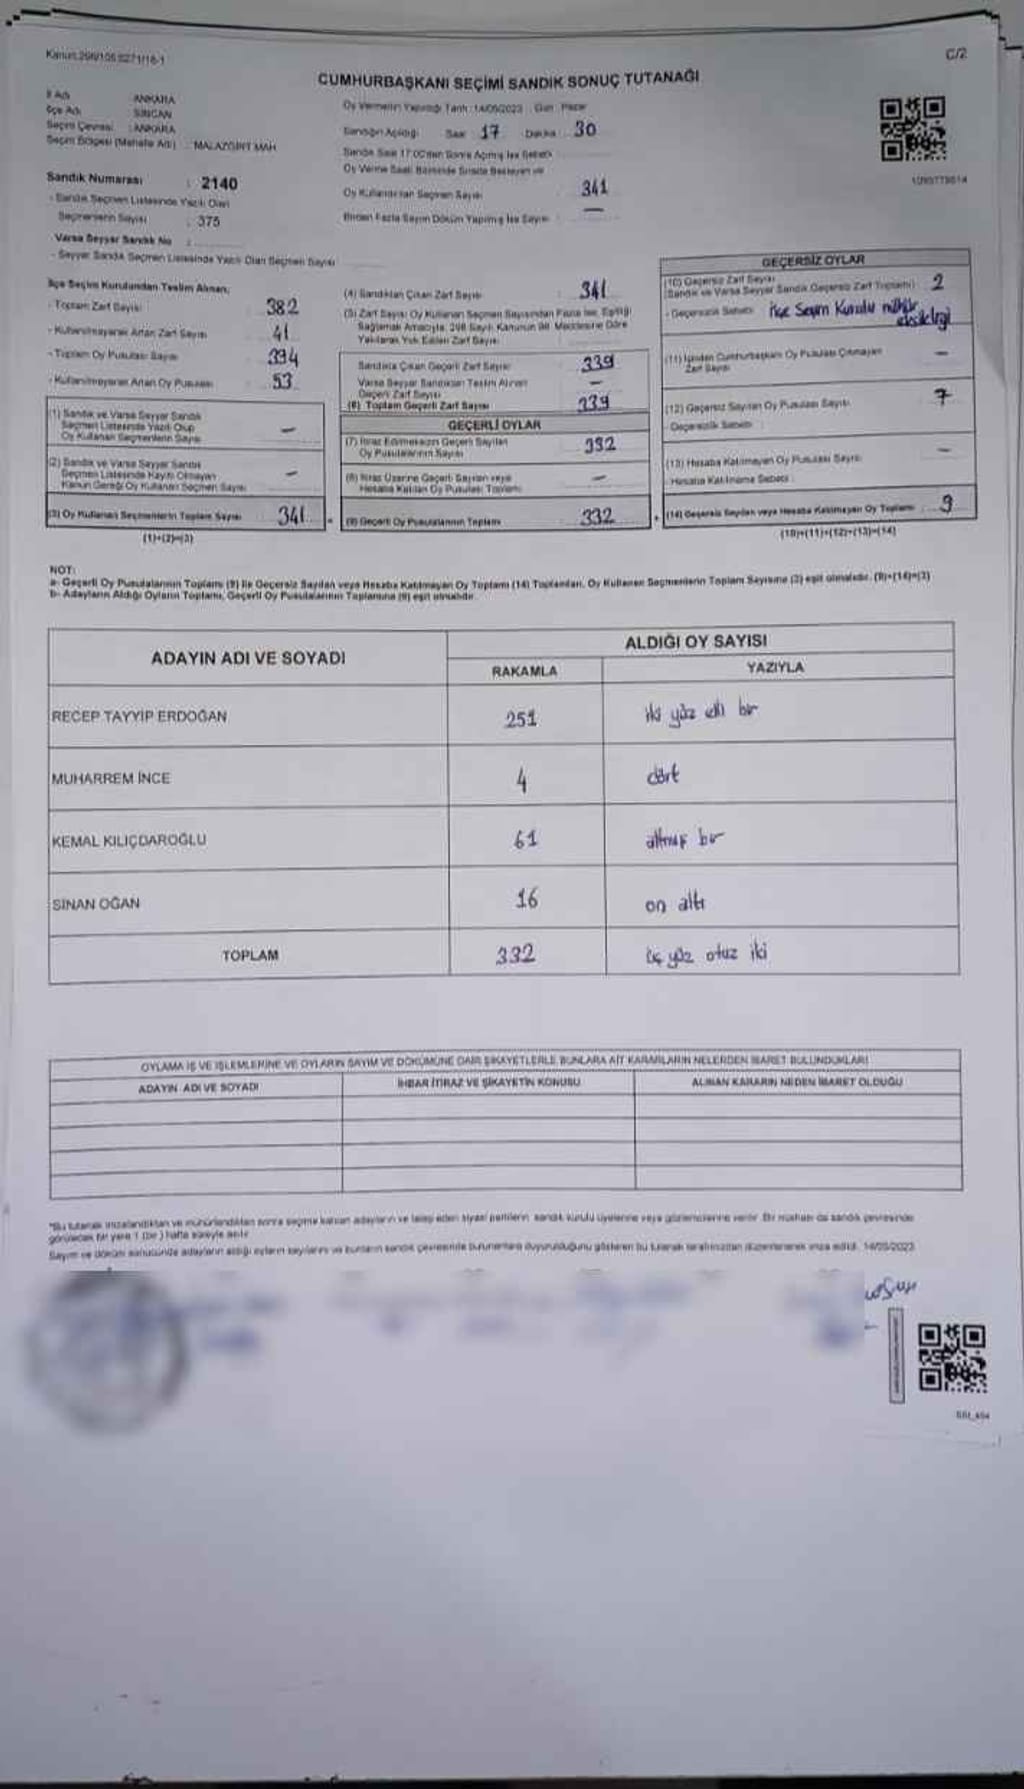 Kanun:298/105 5271/16-1
C/2
CUMHURBAŞKANI SEÇİMİ SANDIK SONUÇ TUTANAĞI
İl Adı : ANKARA
İlçe Adı : SİNCAN
Seçim Çevresi : ANKARA
Seçim Bölgesi (Mahalle Adı) : MALAZGİRT MAH
Sandık Numarası : 2140
- Sandık Seçmen Listesinde Yazılı Olan
Seçmenlerin Sayısı : 375
Varsa Seyyar Sandık No :
- Seyyar Sandık Seçmen Listesinde Yazılı Olan Seçmen Sayısı
Oy Vermenin Yapıldığı Tarih : 14/05/2023 Gün : Pazar
Sandığın Açıldığı Saat : 17 Dakika : 30
Sandık Saat 17:00'den Sonra Açılmış İse Sebebi
Oy Verme Saati Bitiminde Sırada Bekleyen ve
Oy Kullandırılan Seçmen Sayısı 341
Birden Fazla Sayım Döküm Yapılmış İse Sayısı : —
İlçe Seçim Kurulundan Teslim Alınan;
- Toplam Zarf Sayısı 382
- Kullanılmayarak Artan Zarf Sayısı 41
- Toplam Oy Pusulası Sayısı 394
- Kullanılmayarak Artan Oy Pusulası 53
(1) Sandık ve Varsa Seyyar Sandık
Seçmen Listesinde Yazılı Olup
Oy Kullanan Seçmenlerin Sayısı —
(2) Sandık ve Varsa Seyyar Sandık
Seçmen Listesinde Kayıtlı Olmayan
Kanun Gereği Oy Kullanan Seçmen Sayısı —
(3) Oy Kullanan Seçmenlerin Toplam Sayısı 341
(1)+(2)=(3)
(4) Sandıktan Çıkan Zarf Sayısı : 341
(5) Zarf Sayısı Oy Kullanan Seçmen Sayısından Fazla İse, Eşitliği
Sağlamak Amacıyla, 298 Sayılı Kanunun İlgili Maddesine Göre
Yakılarak Yok Edilen Zarf Sayısı
Sandıkta Çıkan Geçerli Zarf Sayısı 339
Varsa Seyyar Sandıktan Teslim Alınan
Geçerli Zarf Sayısı —
(6) Toplam Geçerli Zarf Sayısı 339
GEÇERLİ OYLAR
(7) İtiraz Edilmeksizin Geçerli Sayılan
Oy Pusulalarının Sayısı 332
(8) İtiraz Üzerine Geçerli Sayılan veya
Hesaba Katılan Oy Pusulası Toplamı —
(9) Geçerli Oy Pusulalarının Toplamı 332
GEÇERSİZ OYLAR
(10) Geçersiz Zarf Sayısı
(Sandık ve Varsa Seyyar Sandık Geçersiz Zarf Toplamı) 2
- Geçersizlik Sebebi : İlçe Seçim Kurulu mühür
eksikliği
(11) İçinden Cumhurbaşkanı Oy Pusulası Çıkmayan
Zarf Sayısı —
(12) Geçersiz Sayılan Oy Pusulası Sayısı 7
- Geçersizlik Sebebi :
(13) Hesaba Katılmayan Oy Pusulası Sayısı —
- Hesaba Katılmama Sebebi :
(14) Geçersiz Sayılan veya Hesaba Katılmayan Oy Toplamı 9
(10)+(11)+(12)+(13)=(14)
NOT:
a- Geçerli Oy Pusulalarının Toplamı (9) ile Geçersiz Sayılan veya Hesaba Katılmayan Oy Toplamı (14) Toplamları, Oy Kullanan Seçmenlerin Toplam Sayısına (3) eşit olmalıdır. (9)+(14)=(3)
b- Adayların Aldığı Oyların Toplamı, Geçerli Oy Pusulalarının Toplamına (9) eşit olmalıdır.
ADAYIN ADI VE SOYADI
ALDIĞI OY SAYISI
RAKAMLA
YAZIYLA
RECEP TAYYİP ERDOĞAN 251 iki yüz elli bir
MUHARREM İNCE 4 dört
KEMAL KILIÇDAROĞLU 61 altmış bir
SİNAN OĞAN 16 on altı
TOPLAM 332 üç yüz otuz iki
OYLAMA İŞ VE İŞLEMLERİNE VE OYLARIN SAYIM VE DÖKÜMÜNE DAİR ŞİKAYETLERLE BUNLARA AİT KARARLARIN NELERDEN İBARET BULUNDUKLARI
ADAYIN ADI VE SOYADI
İHBAR İTİRAZ VE ŞİKAYETİN KONUSU
ALINAN KARARIN NEDEN İBARET OLDUĞU
*Bu tutanak imzalandıktan ve mühürlendikten sonra seçime katılan adayların ve talep eden siyasi partilerin sandık kurulu üyelerine veya gözlemcilerine verilir. Bir nüshası da sandık çevresinde
görülecek bir yere 1 (bir) hafta süreyle asılır.
Sayım ve döküm sonucunda adayların aldığı oyların sayılarını ve bunların sandık çevresinde bulunanlara duyurulduğunu gösteren bu tutanak tarafımızdan düzenlenerek imza edildi. 14/05/2023